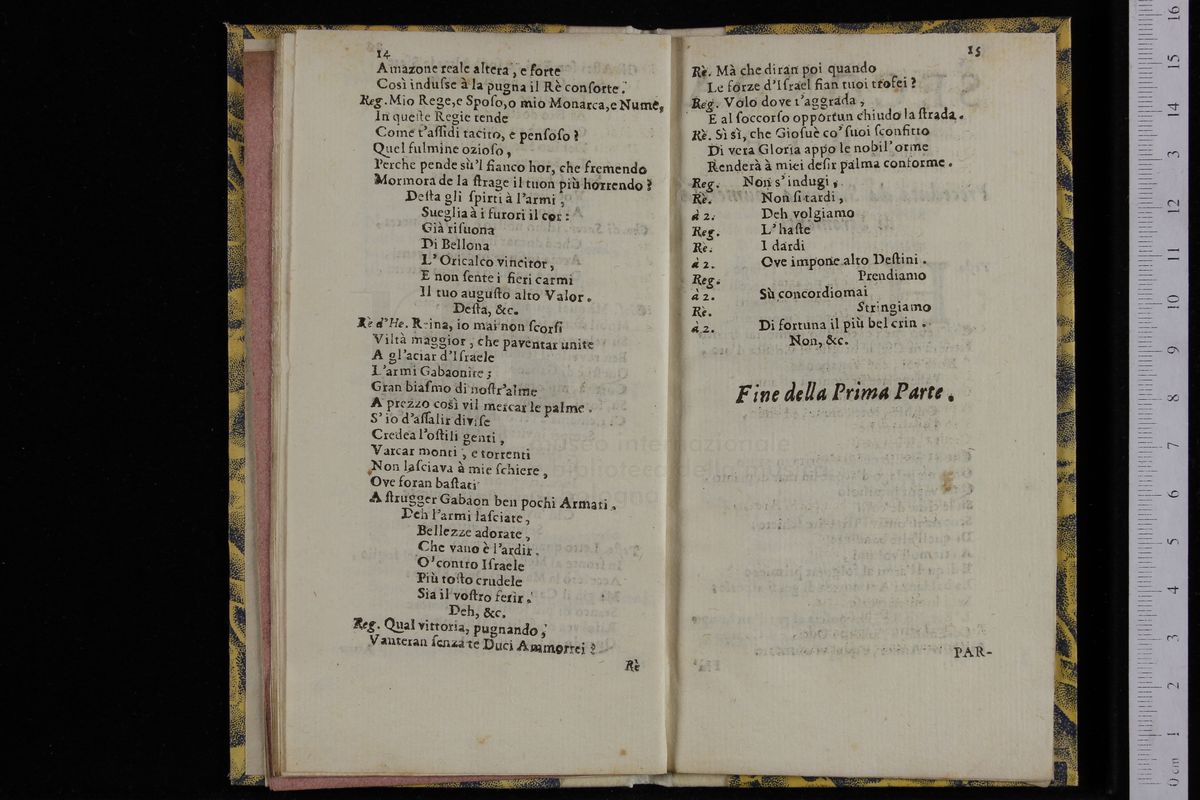 14
Amazone reale altera, e forte
Così indusse à la pugna il Rè consorte.
Reg. Mio Rege, e Sposo, o mio Monarca, e Nume,
In queste Regie tende
Come t'assidi tacito, e pensoso?
Quel fulmine ozioso,
Perche pende sù'l fianco hor, che fremendo
Mormora de la strage il tuon più horrendo?
Desta gli spirti à l'armi,
Sueglia à i furori il cor:
Già risuona
Di Bellona
L'Oricalco vincitor,
E non sente i fieri carmi
Il tuo augusto alto Valor.
Desta, &c.
Rè d'He. Reina, io mai non scorsi
Viltà maggior, che paventar unite
A gl'aciar d'Israele
L'armi Gabaonite;
Gran biasmo di nostr'alme
A prezzo così vil mercar le palme.
S'io d'assalir divise
Credea l'ostili genti,
Varcar monti, e torrenti
Non lasciava à mie schiere,
Ove foran bastati
A strugger Gabaon ben pochi Armati.
Deh l'armi lasciate,
Bellezze adorate,
Che vano è l'ardir.
O' contro Israele
Più tosto crudele
Sia il vostro ferir.
Deh, &c.
Reg. Qual vittoria, pugnando,
Vanteran senza te Duci Ammorrei?
Rè
15
Rè. Mà che diran poi quando
Le forze d'Israel fian tuoi trofei?
Reg. Volo dove t'aggrada,
E al soccorso opportun chiudo la strada.
Rè. Sì sì, che Giosuè co' suoi sconfitto
Di vera Gloria appo le nobil'orme
Renderà à miei desir palma conforme.
Reg. Non s'indugi,
Rè. Non si tardi,
à 2. Deh volgiamo
Reg. L'haste
Rè. I dardi
à 2. Ove impone alto Destini.
Reg. Prendiamo
à 2. Sù concordiomai
Rè. Stringiamo
à 2. Di fortuna il più bel crin.
Non, &c.
Fine della Prima Parte.
PAR-
museo internazionale
biblioteca della musica
0 cm 1 2 3 4 5 6 7 8 9 10 11 12 13 14 15 16